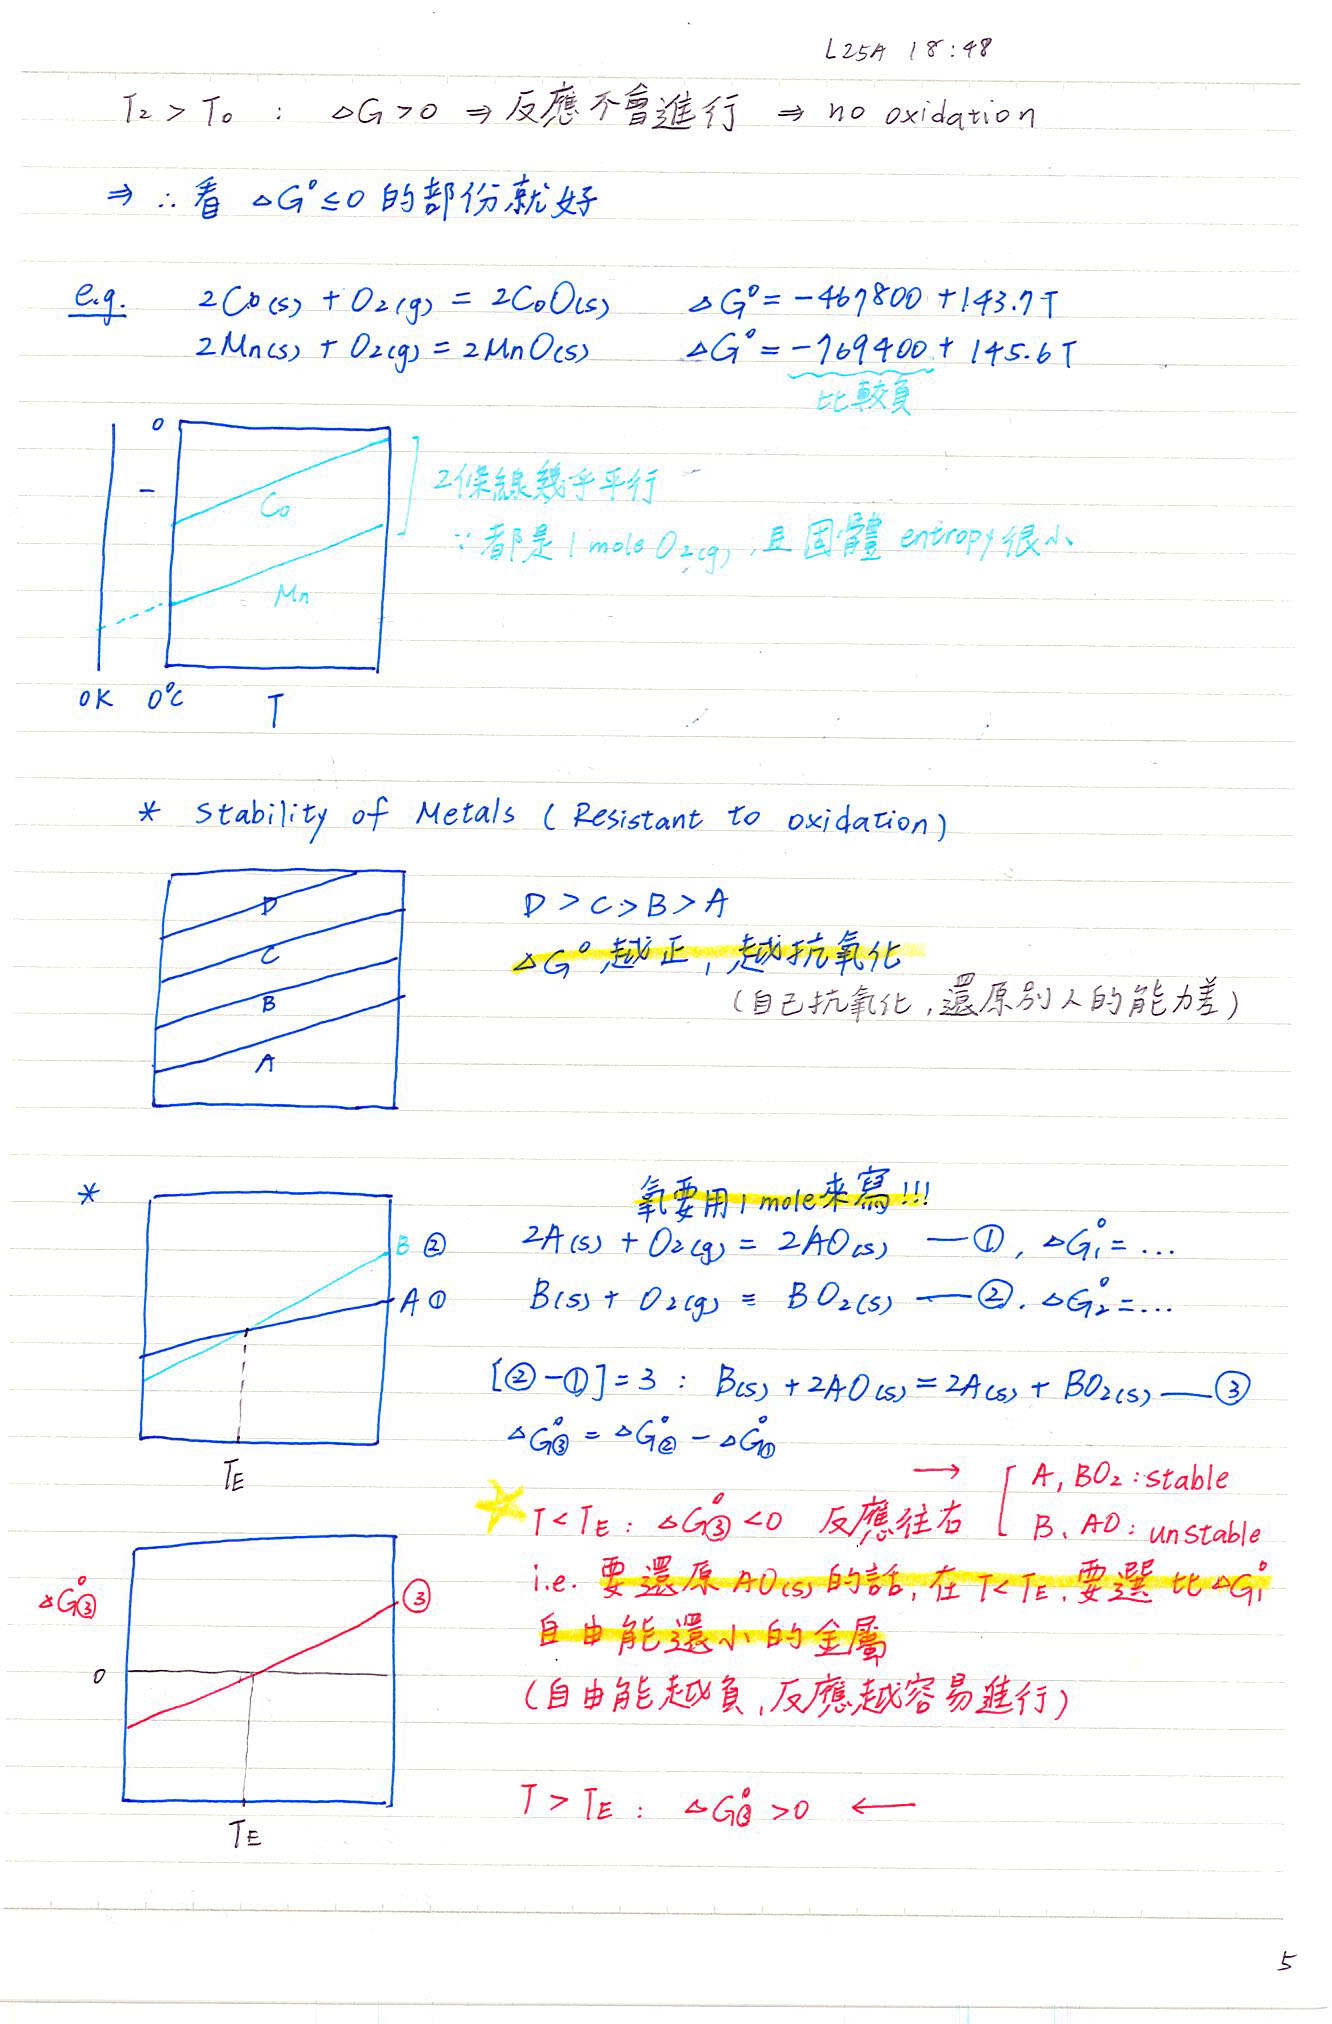 L25A 18:48
T₂ > T₀ : △G > 0 ⇒ 反應不會進行 ⇒ no oxidation
⇒ ∴ 看 △G° ≤ 0 的部份就好
e.g. 2Co(s) + O₂(g) = 2CoO(s) △G° = -467800 + 143.7T
2Mn(s) + O₂(g) = 2MnO(s) △G° = -769400 + 145.6T
比較負
0
-
Co
Mn
2條線幾乎平行
∵ 都是 1 mole O₂(g), 且固體 entropy 很小
0K 0°C T
* Stability of Metals (Resistant to oxidation)
D
C
B
A
D > C > B > A
△G° 越正, 越抗氧化
(自己抗氧化, 還原別人的能力差)
*
B ②
A ①
T_E
氧要用 1 mole 來寫!!!
2A(s) + O₂(g) = 2AO(s) — ①, △G₁° = ...
B(s) + O₂(g) = BO₂(s) — ②. △G₂° = ...
[②-①] = 3 : B(s) + 2AO(s) = 2A(s) + BO₂(s) — ③
△G③° = △G②° - △G①°
→ [ A, BO₂ : stable
T < T_E : △G③° < 0 反應往右 B、AO : unstable
i.e. 要還原 AO(s) 的話, 在 T < T_E, 要選比 △G₁°
自由能還小的金屬
(自由能越負, 反應越容易進行)
△G③°
0
③
T_E
T > T_E : △G③° > 0 ←
5